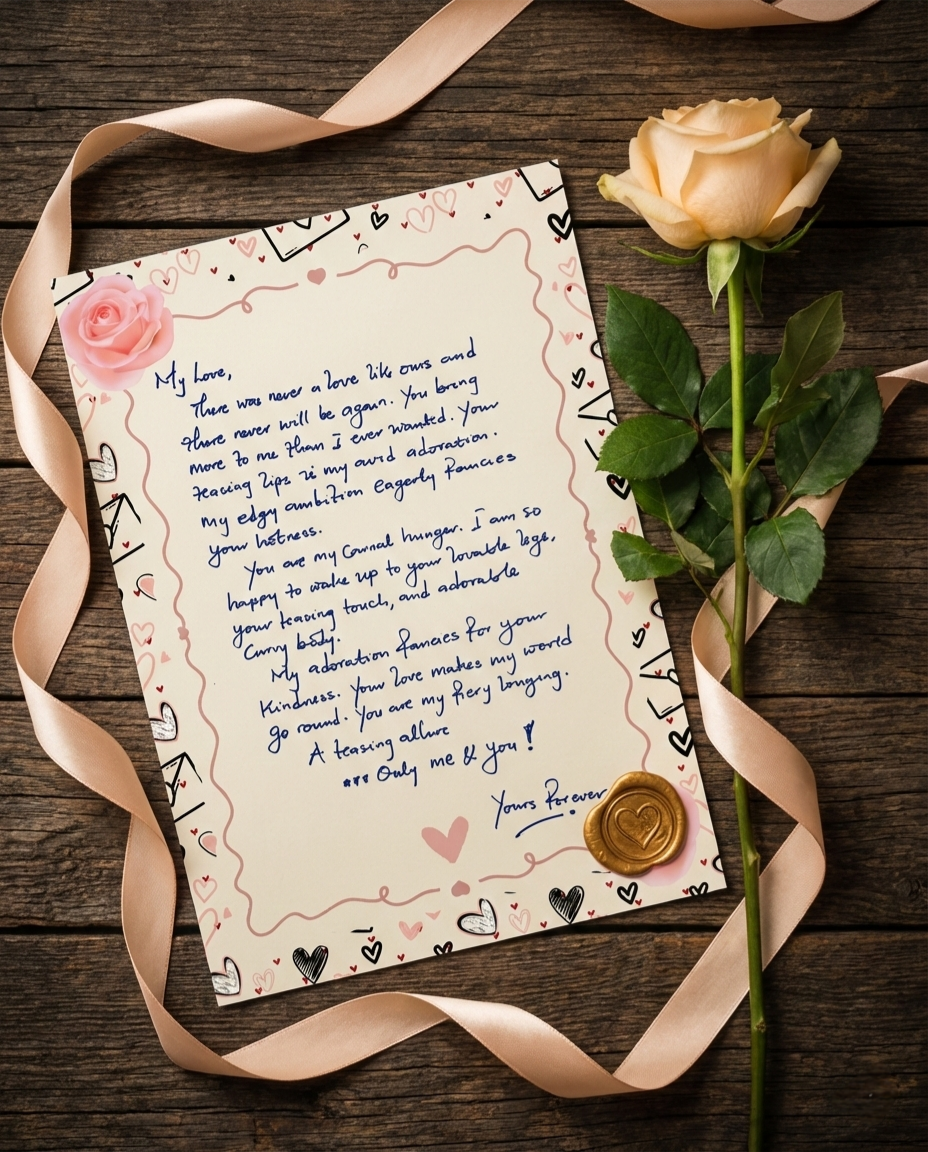 My Love,
There was never a love like ours and
there never will be again. You bring
more to me than I ever wanted. Your
teasing lips is my avid adoration.
my edgy ambition eagerly fancies
your hotness.
You are my Carnal hunger. I am so
happy to wake up to your lovable legs,
your teasing touch, and adorable
Curvy body.
My adoration fancies for your
Kindness. Your love makes my world
go round. You are my fiery longing.
A teasing allure
... Only me & you !
Yours Forever